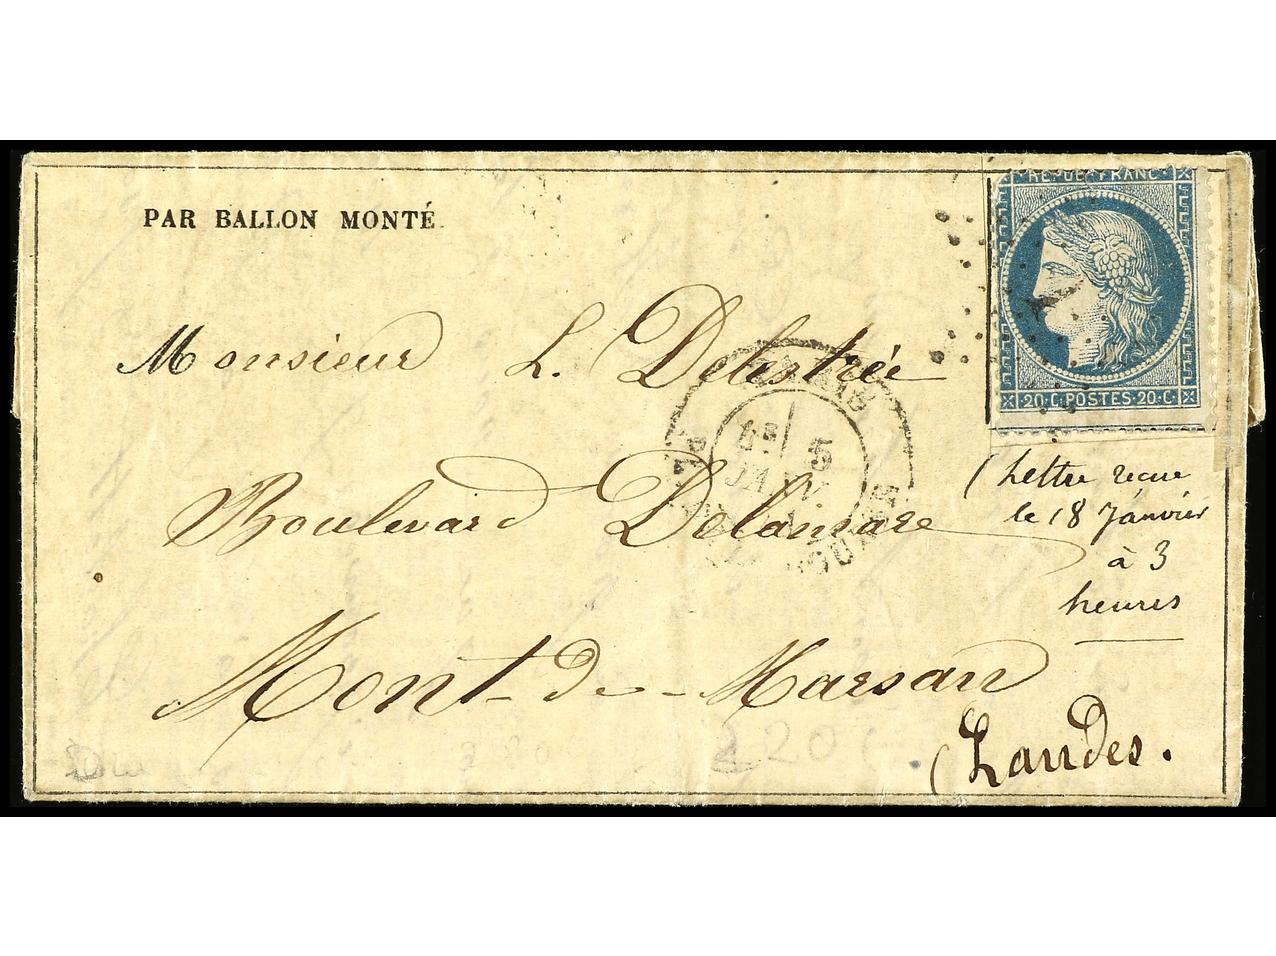 PAR BALLON MONTÉ
REPUB. FRANC
20·C·POSTES·20·C·
Monsieur L. Delestrée
PARIS
5
JANV.
Boulevard Delamare
(Lettre recue
le 18 Janvier
à 3
heures
Mont-de-Marsan
(Landes.